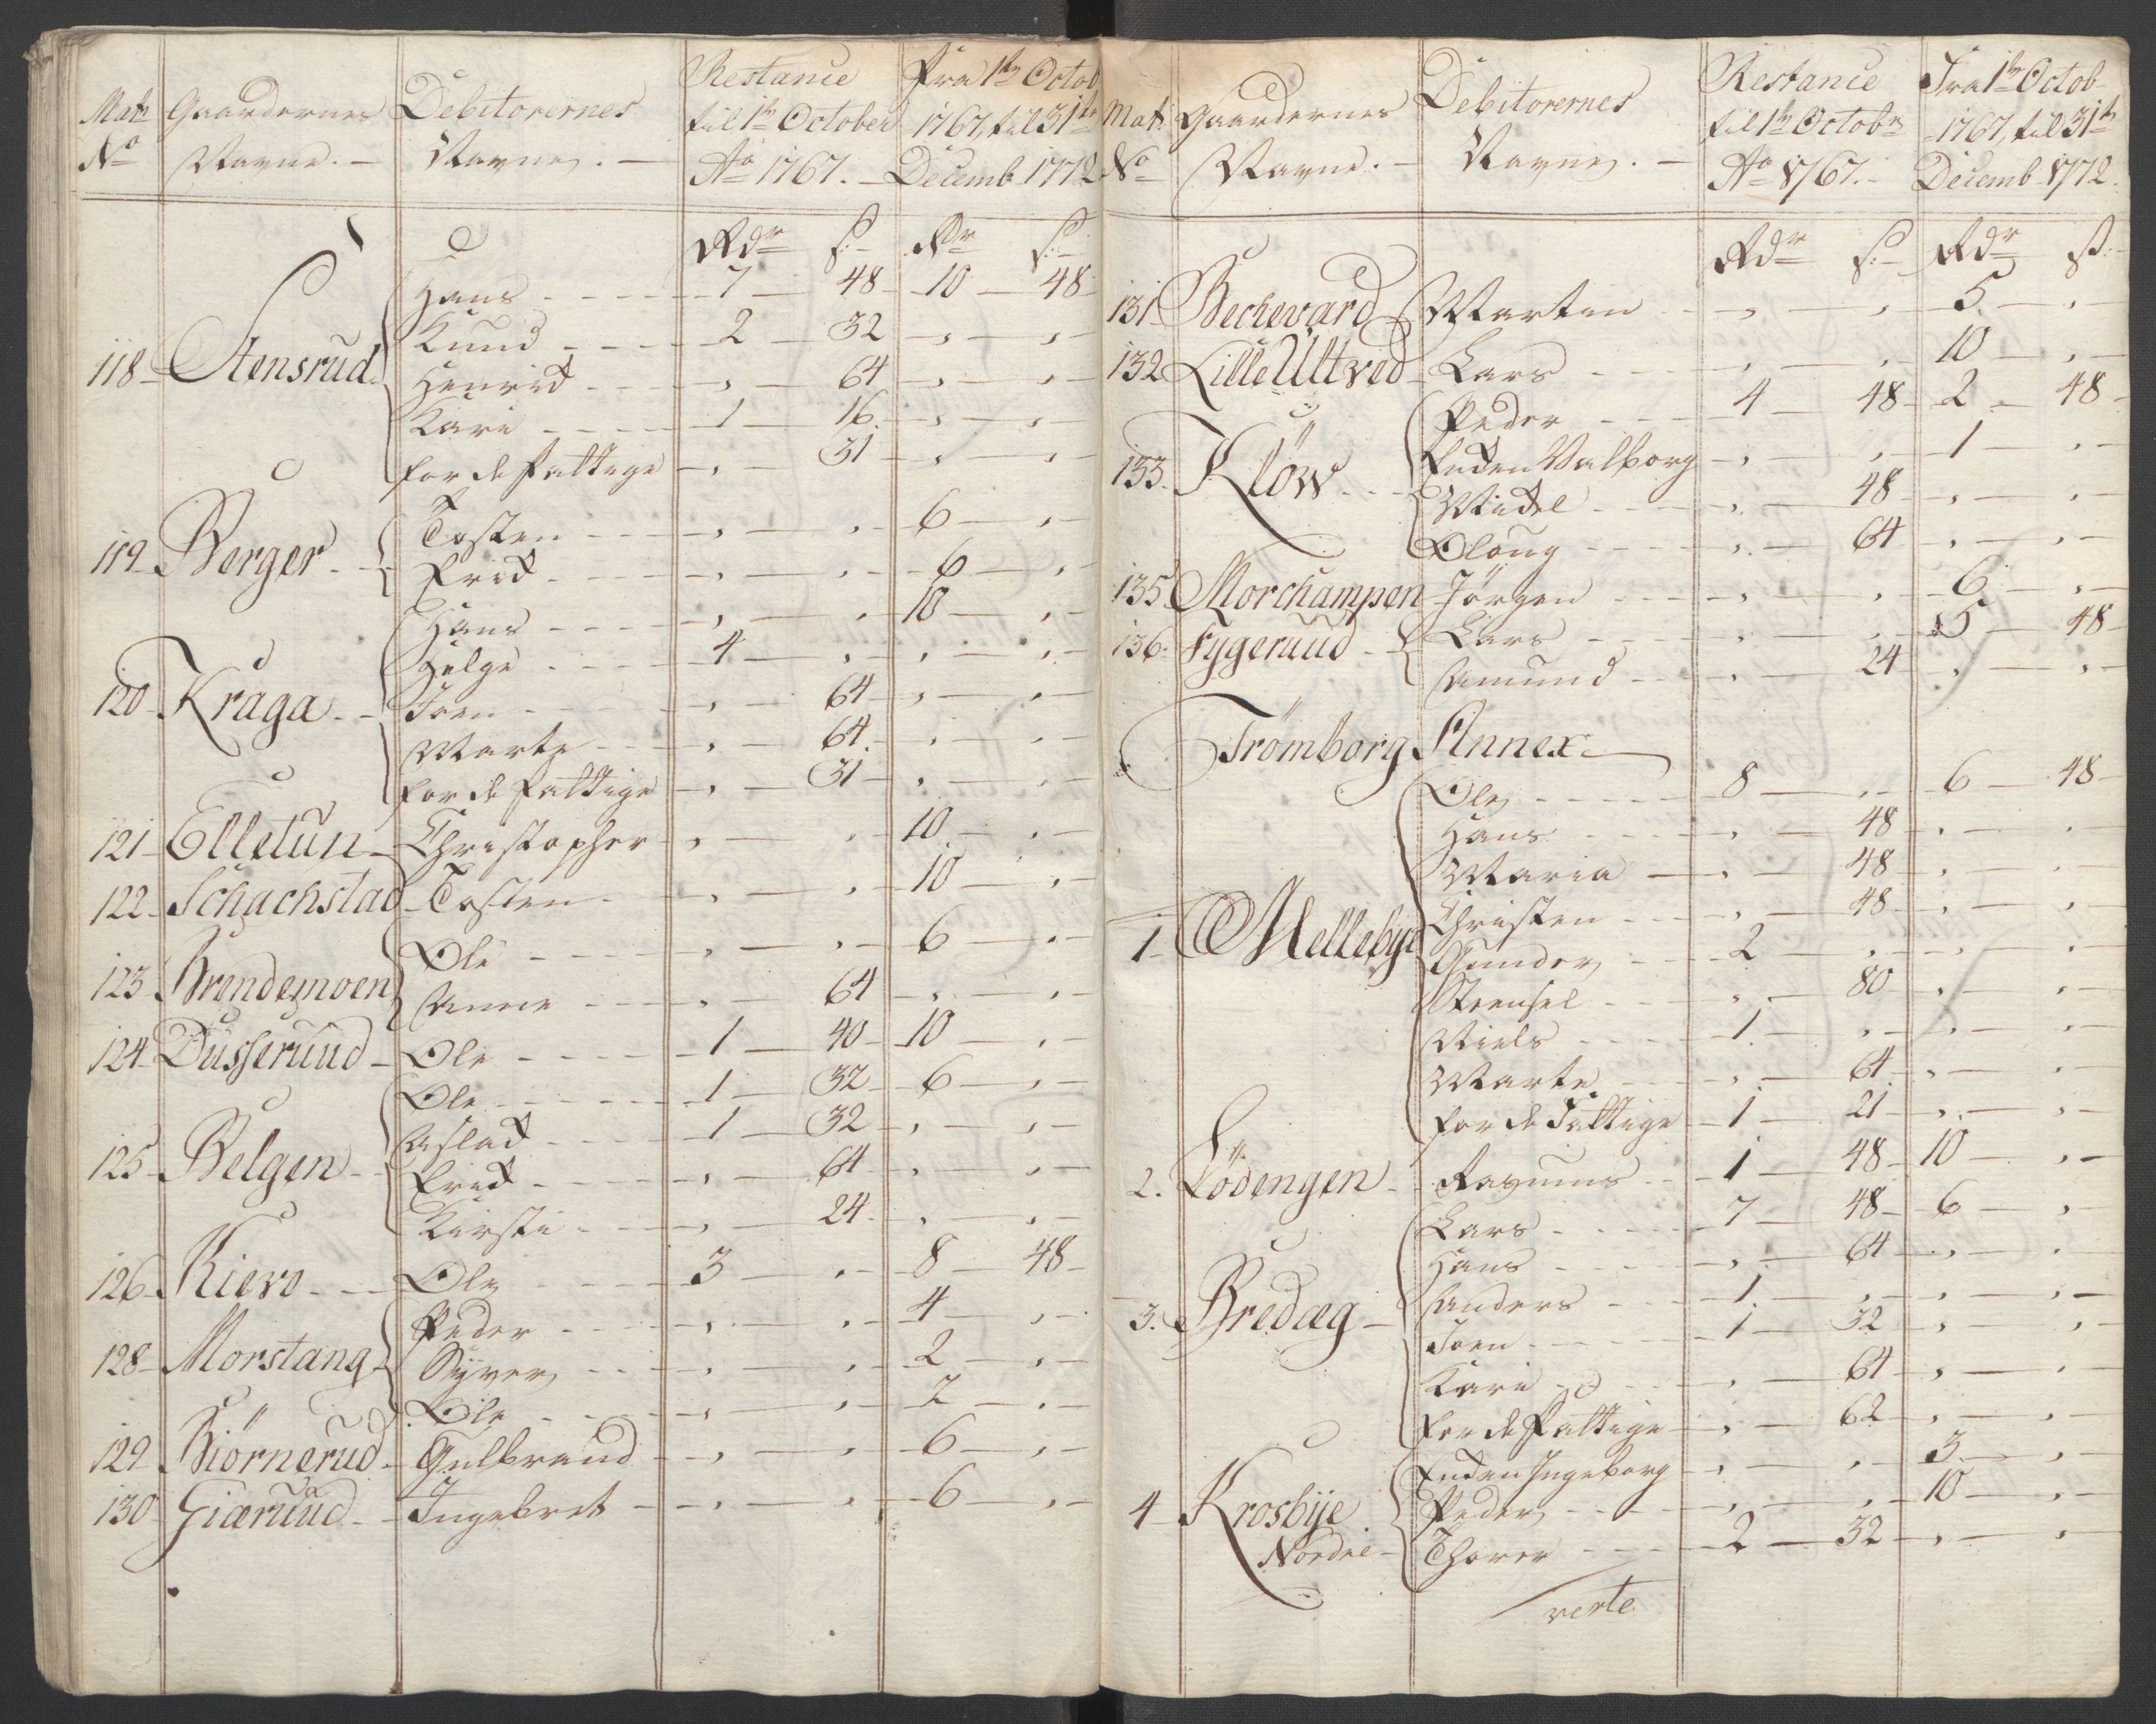 Matr Gaardernes Debitorernes Restance Fra 1te Octob
No Navne. Navne. til 1te October 1767, til 31te
Ao 1767. Decemb 1772
Rdr s. Rdr s.
118 Stensrud Hans 7 48 10 48
Knud 2 32 , ,
Henrich , 64 , ,
Kari 1 16 , ,
for de Fattige , 31 , ,
119 Berger Tosten , , 6 ,
Erich , , 6 ,
120 Kraga Hans , , 10 ,
Helge 4 , , ,
Joen , 64 , ,
Marte , 64 , ,
for de Fattige , 31 , ,
121 Elletun Christopher , , 10 ,
122 Schachstad Tosten , , 10 ,
123 Brendemoen Ole , , 6 ,
Anne , 64 , ,
124 Dusserüud Ole 1 40 10 ,
125 Belgen Ole 1 32 6 ,
Aslach 1 32 , ,
Erich , 64 , ,
Kirsti , 24 , ,
126 Kiero Ole 3 , 8 48
128 Morstang Peder , , 4 ,
Syver , , 2 ,
Ole , , 2 ,
129 Biörnerud Gulbrand , , 6 ,
130 Giærüud Ingebret , , 6 ,
Mat: Gaardernes Debitorernes Restance Fra 1te Octob
No Navne. Navne. til 1te Octobr 1767, til 31te
Ao 1767. Decemb 1772.
Rdr s. Rdr s.
131 Bechevard Martin , , 5 ,
132 Lille Ultved Lars , , 10 ,
133 Klöw Peder 4 48 2 48
Enken Valborg , , 1 ,
Michel , 48 , ,
Oloug , 64 , ,
135 Morchampen Jörgen , , 6 ,
136 Fygerüud Lars , , 5 48
Amund , 24 , ,
Trömborg Annex
1 Mellebye Ole 8 , 6 48
Hans , 48 , ,
Maria , 48 , ,
Christen , 48 , ,
Gunder 2 , , ,
, 80 , ,
Niels 1 , , ,
Marte , 64 , ,
for de Fattige 1 21 , ,
2. Lödengen Rasmus 1 48 10 ,
3. Bredæg Lars 7 48 6 ,
Hans , 64 , ,
Anders 1 , , ,
Joen 1 32 , ,
Kari , 64 , ,
for de Fattige , 62 , ,
4 Krosbye Enken Ingeborg , , 3 ,
Peder , , 10 ,
Nordre Thorer 2 32 , ,
verte